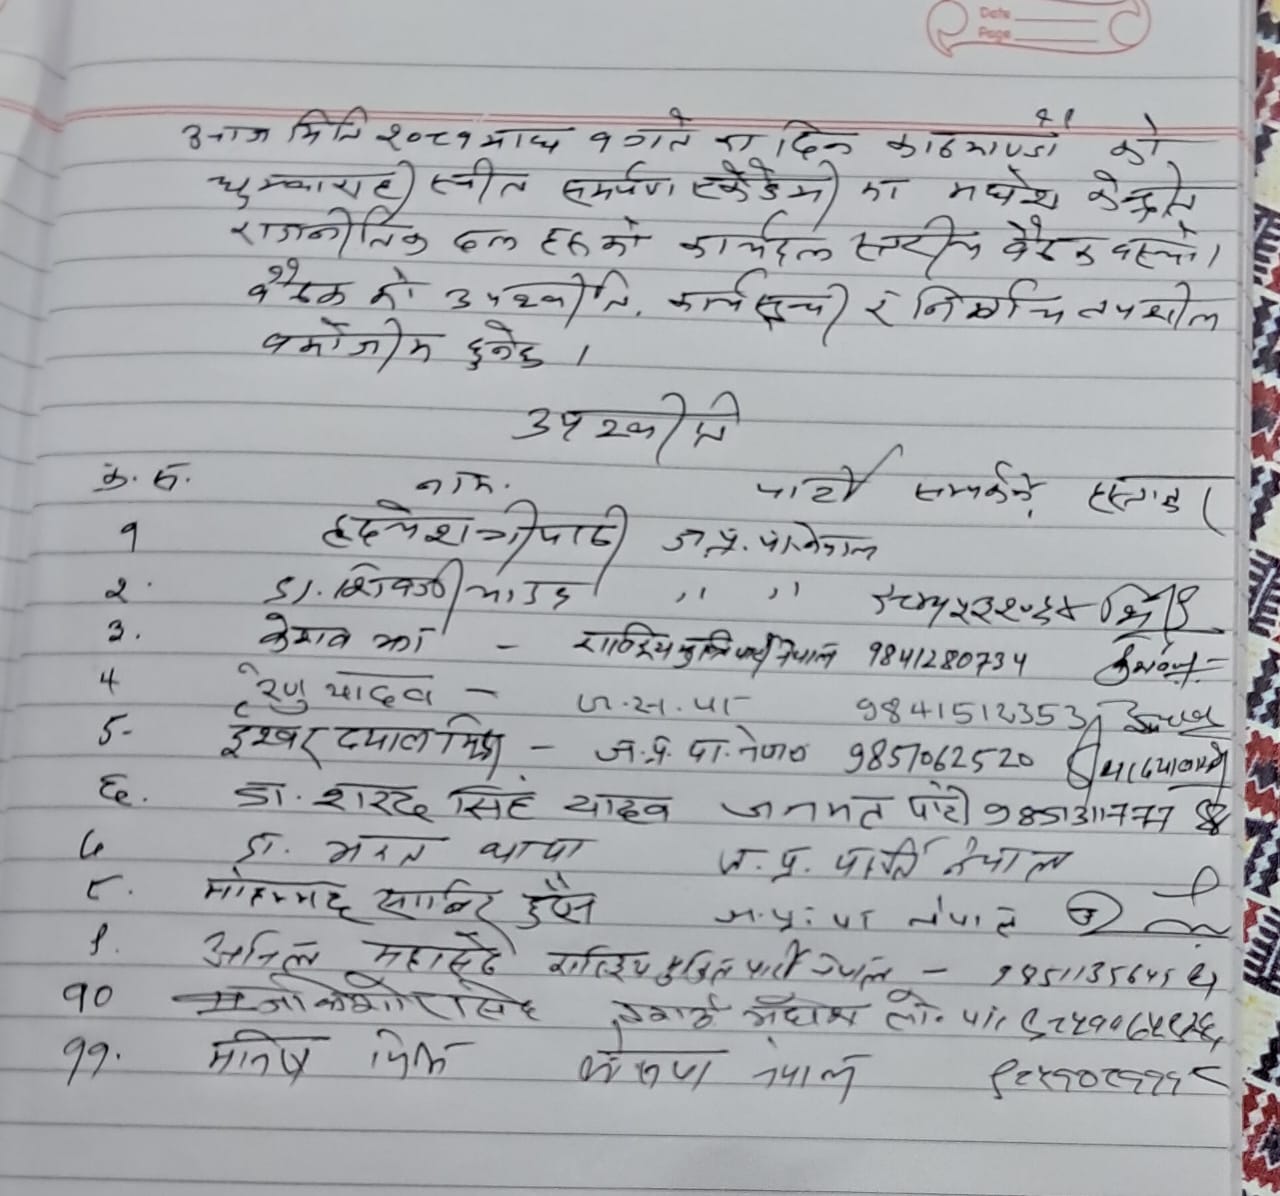 Date
Page
आज मिति २०८१ माघ १ गते का दिन काठमाण्डौ को
थुम्का स्थीत समर्पण एकेडेमी मा मधेश केन्द्रीत
राजनीतिक दल हरुको कार्यदल स्तरीय बैठक बस्यो।
बैठक को उपस्थीति, कार्यसूची र निर्णय तपशील
बमोजीम हुनेछ ।
उपस्थीति
क्र. स. नाम. पार्टी सम्पर्क नं. हस्ताक्षर
१ हृदयेश त्रीपाठी ज.प्र. पा. नेपाल
२. डा. शिवजी यादव ,, ,,
३. केशव झा - राष्ट्रिय मुक्ति पार्टी नेपाल 9841280734
४ रेणु यादव - ज.स.पा 9841512353
5- ईश्वर दयाल मिश्र - ज.प्र. पा. नेपाल 9851062520
६. डा. शरद सिंह यादव जनमत पार्टी
७ डा. भरत थापा ज. प्र. पार्टी नेपाल
८. मोहम्मद साबिर हुसैन ज.प्र. पा नेपाल
९. अनिल महासेठ राष्ट्रिय मुक्ति पार्टी नेपाल - 9851135645
१० सिंह मधेश लो. पा.
११. मनिष मिश्र नेपाल